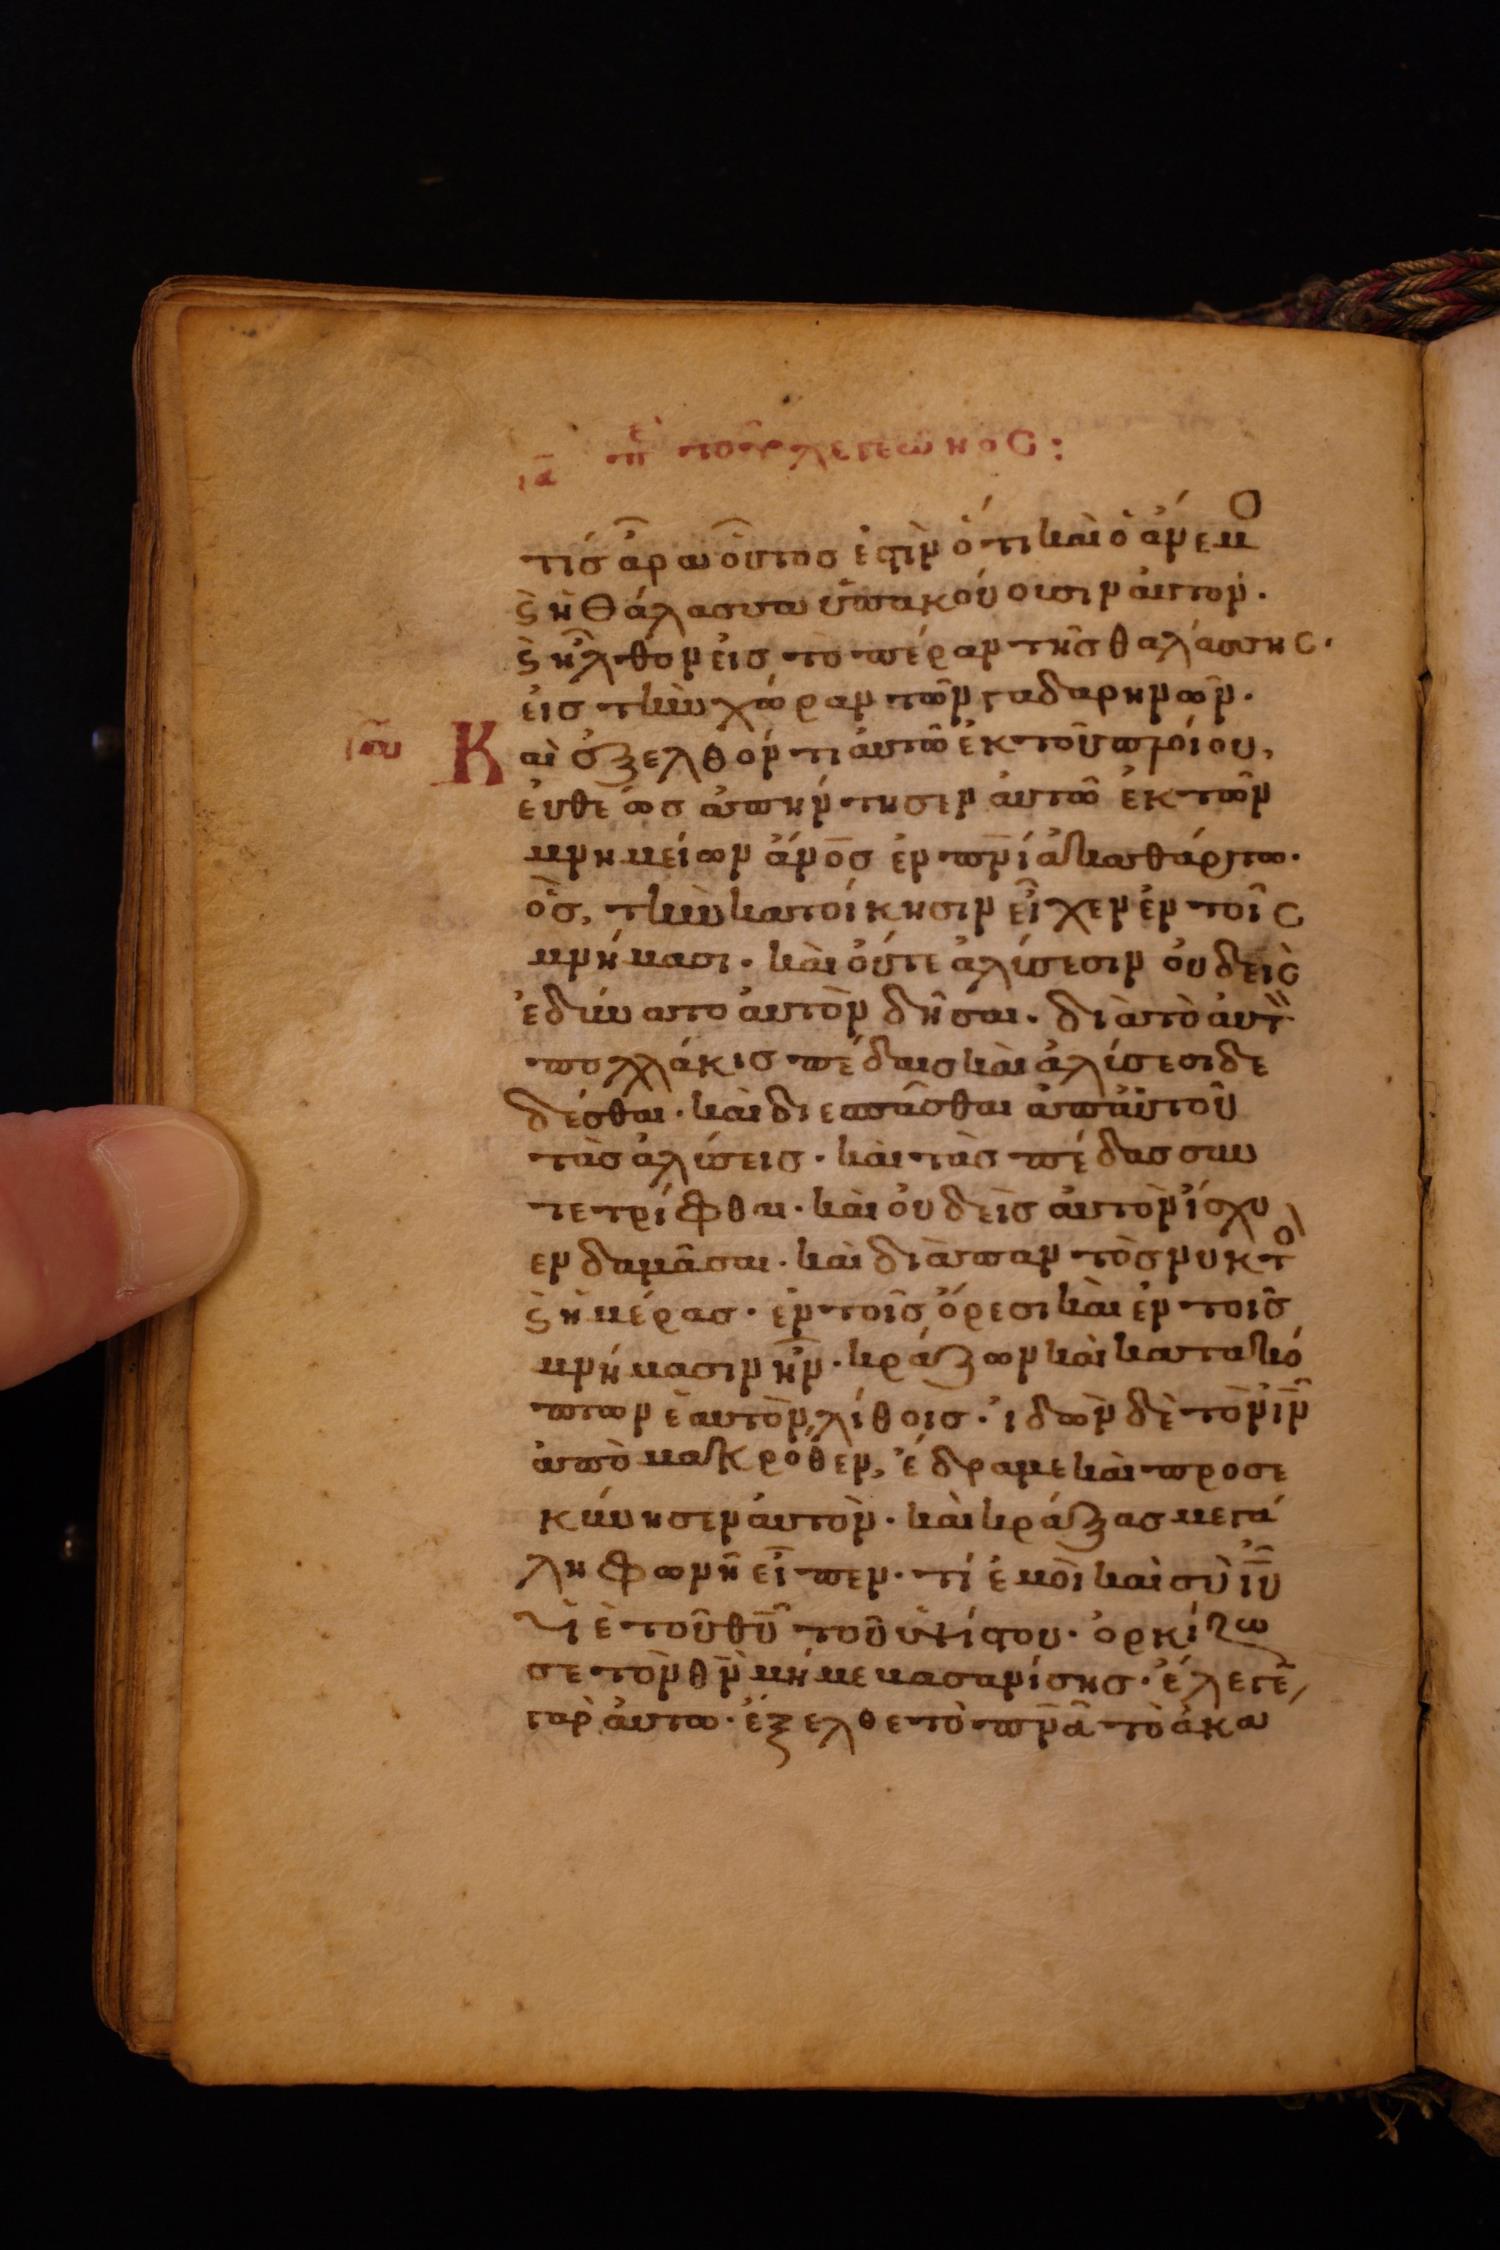 ια πε τοῦ λεγεῶνος:
τίς ἆρα οὗτος ἐστὶν ὅτι καὶ ὁ ἄνεμο
ϛ ἡ θάλασσα ὑπακούουσιν αὐτον.
ϛ ἦλθον εἰς τὸ πέραν τῆς θαλάσσης.
εἰς τὴν χώραν τῶν γαδαρηνῶν.
Καὶ ἐξελθόντι αὐτῶ ἐκ τοῦ πλοίου,
εὐθέως ἀπήντησεν αὐτῶ ἐκ τῶν
μνημείων ἄνο̅ς ἐν πν̅ι ἀκαθάρτω.
ὃς, τὴν κατοίκησιν εἶχεν ἐν τοῖς
μνήμασι. καὶ οὔτε ἁλύσεσιν οὐδεὶς
ἐδύνατο αὐτὸν δῆσαι. διὰ τὸ αὐτ
πολλάκις πέδαις καὶ ἁλύσεσι δε
δέσθαι. καὶ διεσπᾶσθαι ἀπ αὐτοῦ
τὰς ἁλύσεις. καὶ τὰς πέδας συν
τετρίφθαι. καὶ οὐδεὶς αὐτὸν ἴσχυ
εν δαμᾶσαι. καὶ διὰ παντὸς νυκτο
ϛ ἡμέρας. ἐν τοῖς ὄρεσι καὶ ἐν τοῖς
μνήμασιν ἦν. κράζων καὶ κατακό
πτων ἑαυτὸν λίθοις. ἰδὼν δὲ τὸν ιν̅
ἀπὸ μακρόθεν, ἔδραμε καὶ προσε
κύνησεν αὐτὸν. καὶ κράξας μεγά
λη φωνῆ εἶπεν. τί ἐμοὶ καὶ σὺ ιυ̅
υἱὲ τοῦ θυ̅ τοῦ ὑψίστου. ὁρκίζω
σε τὸν θν̅ μή με βασανίσης. ἔλεγε
γὰρ αὐτω. ἔξελθε τὸ πνα̅ τὸ ἀκα